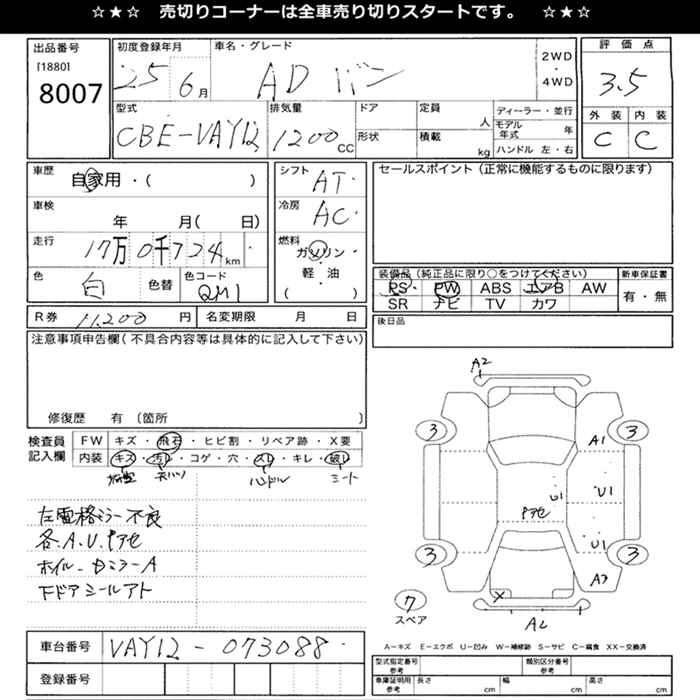 ☆★☆ 売切りコーナーは全車売り切りスタートです。 ☆★☆
出品番号
[1880]
8007
初度登録年月
25 6月
車名・グレード
ADバン
2WD
・
4WD
評価点
3.5
型式
CBE-VAY12
排気量
1200 CC
ドア
形状
定員
人
積載
kg
ディーラー・並行
モデル年式 年
ハンドル 左・右
外装 内装
C C
車歴
自家用・( )
車検
年 月( 日)
走行
17万0千724km
色
白
色替
色コード
QM1
シフト
AT
冷房
AC
燃料
ガソリン・
軽・油
( )
セールスポイント(正常に機能するものに限ります)
装備品(純正品に限り○をつけてください)
PS PW ABS エアB AW
SR ナビ TV カワ
新車保証書
有・無
後日品
R券 11,200 円
名変期限 月 日
注意事項申告欄(不具合内容等は具体的に記入して下さい)
修復歴 有 〔箇所 〕
検査員
記入欄
FW キズ・飛石・ヒビ割・リペア跡・X要
内装 キズ・汚れ・コゲ・穴・スレ・キレ・破れ
天ハリ ハンドル シート
左電格ミラー不良
各.A.U.Pアセ
ホイル.ドミラーA
下ドアシールアト
車台番号
VAY12-073088
登録番号
A2
3
3
A1
U1
U1
Pアセ
U1
3
3
A2
X
A2
7
スペア
A－キズ E－エクボ U－凹み W－補修跡 S－サビ C－腐食 XX－交換済
型式指定番号
参考
類別区分番号
参考
車庫証明用
参考
長さ cm
幅 cm
高さ cm